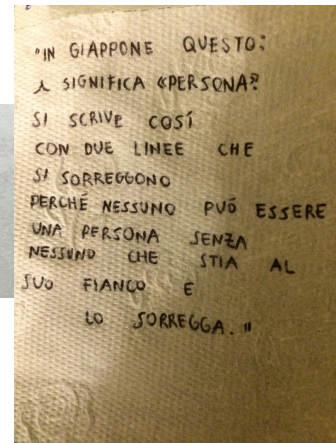 "IN GIAPPONE QUESTO:
人 SIGNIFICA «PERSONA».
SI SCRIVE COSÍ
CON DUE LINEE CHE
SI SORREGGONO
PERCHÉ NESSUNO PUÓ ESSERE
UNA PERSONA SENZA
NESSUNO CHE STIA AL
SUO FIANCO E
LO SORREGGA."